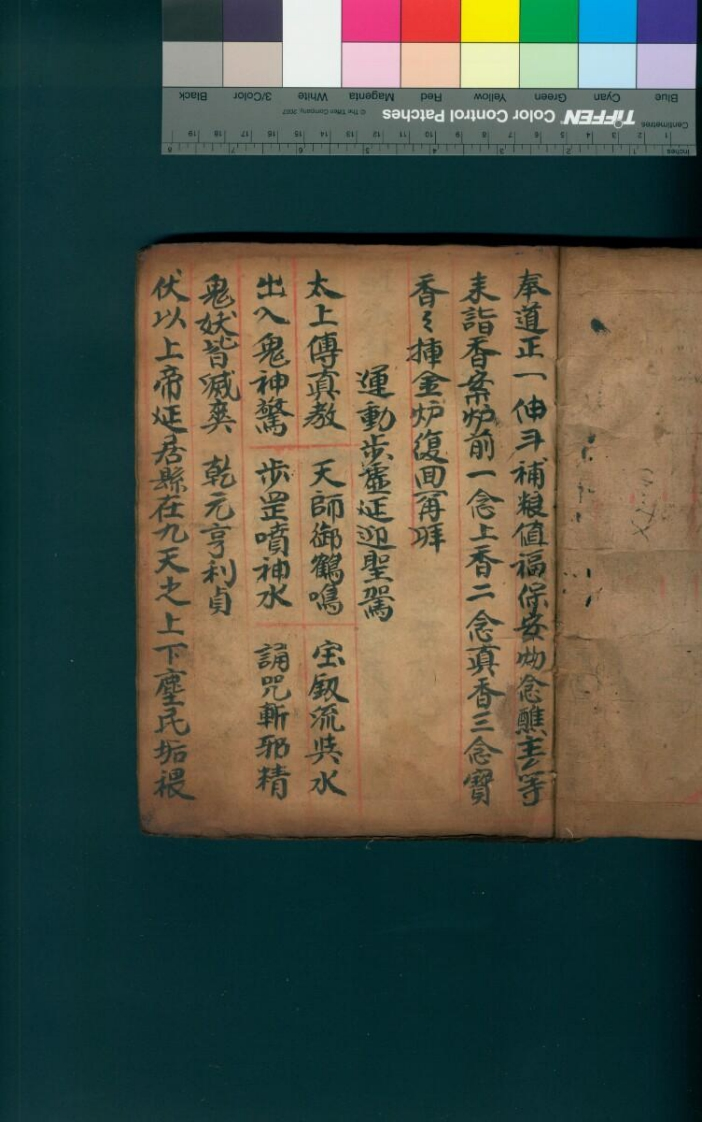 奉道正一伸斗補粮値福保安㐫念醮主〻等
来詣香案炉前一念上香二念真香三念寳
香〻揷金炉復回再拜
運動步虛延迎聖駕
太上傳真教 天師御鶴鳴 宝釼流吳水
出入鬼神驚 步罡噴神水 誦咒斬邪精
鬼妖皆滅爽 乾元亨利貞
伏以上帝延居縣在九天之上下塵氏垢禐
TIFFEN Color Control Patches
© The Tiffen Company, 2007
Blue Cyan Green Yellow Red Magenta White 3/Color Black
Centimetres 1 2 3 4 5 6 7 8 9 10 11 12 13 14 15 16 17 18 19
Inches 1 2 3 4 5 6 7 8